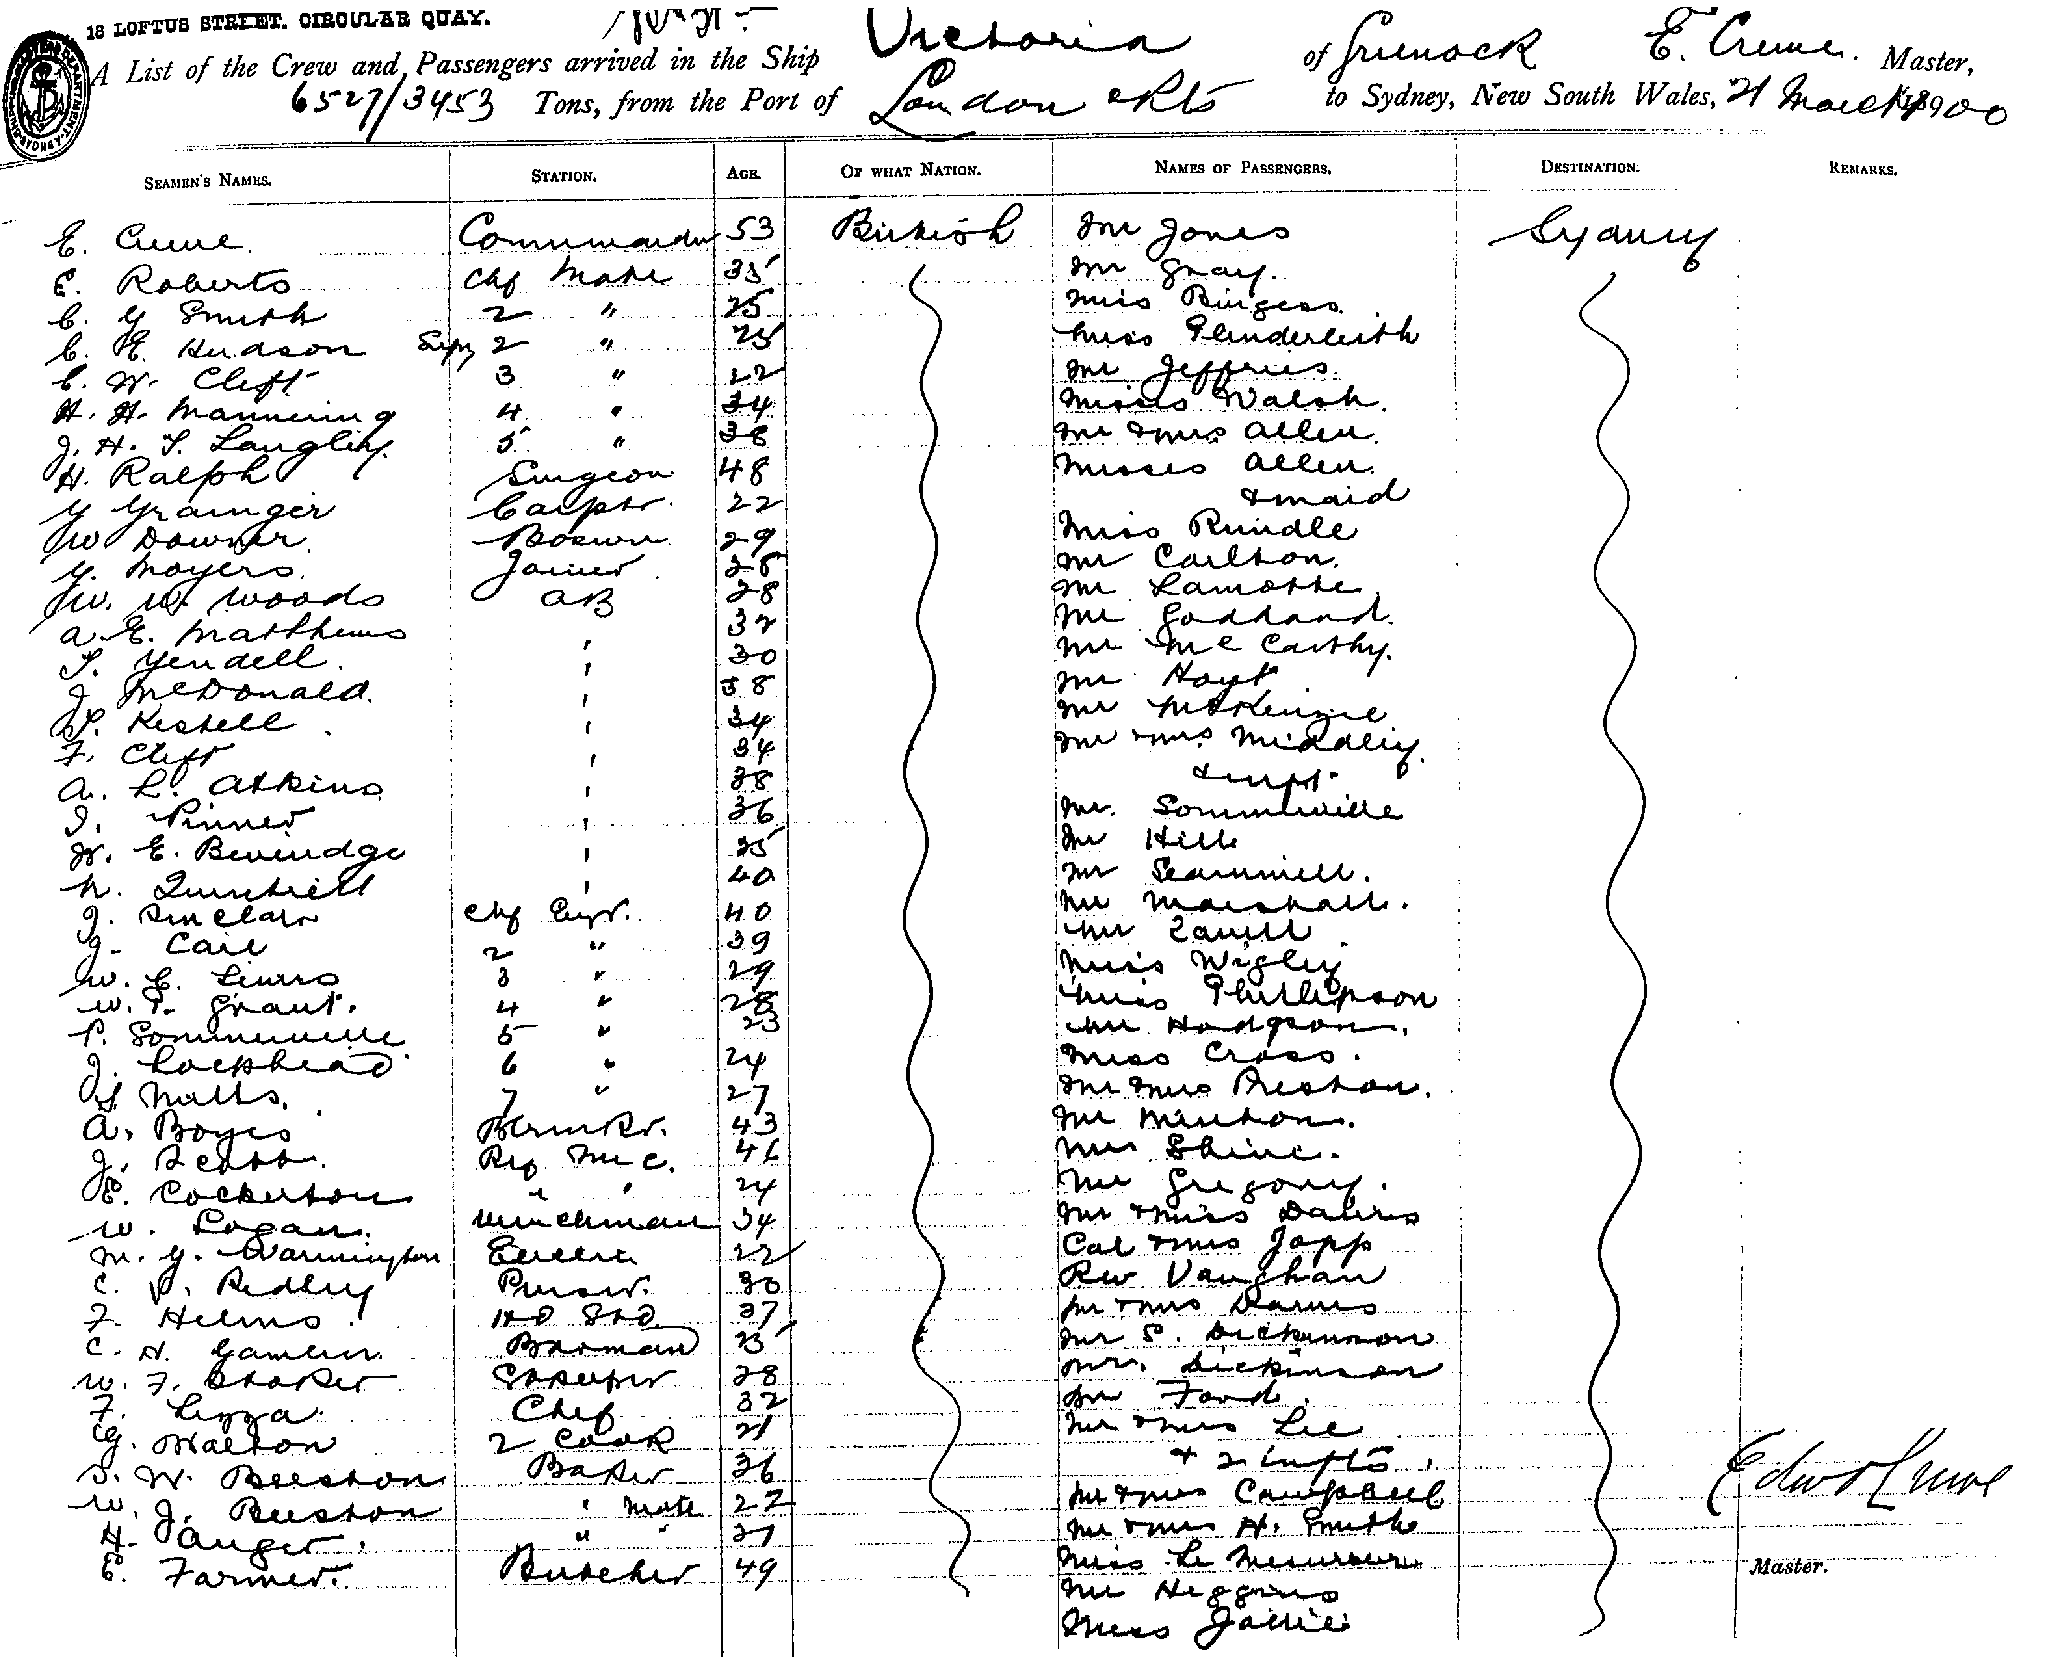 18 LOFTUS STREET. CIRCULAR QUAY.
A List of the Crew and Passengers arrived in the Ship Victoria of Greenock E. Crewe. Master,
6527/3453 Tons, from the Port of London & Pts to Sydney, New South Wales, 21 March 1900
SEAMEN'S NAMES. STATION. AGE. OF WHAT NATION. NAMES OF PASSENGERS. DESTINATION. REMARKS.
E. Crewe. Commander 53 British Mr Jones Sydney
E. Roberts Chf Mate 35 Mr Gray.
C. G Smith 2 " 25 Miss Burgess
C. E. Hudson Supy 2 " 25 Miss Glenderleith
C. W. Clift 3 " 22 Mr Jeffries
H. H. Mannering 4 " 34 Misses Walsh.
J. H. S. Langley. 5 " 38 Mr & Mrs Allen.
H. Ralph Surgeon 48 Misses Allen
G Grainger Carptr. 22 & maid
W Downer. Boswn 29 Miss Rundle
G. Moyers Joiner 28 Mr Carlton.
W. W. Woods AB 28 Mr Lamotte
A. E. Matthews ' 32 Mr Goddard.
S. Yendell. ' 30 Mr McCarthy.
J McDonald. ' 38 Mr Hoyt
S. Kestell ' 34 Mr McKenzie
F. Clift ' 34 Mr & Mrs Middley
A. L. Atkins ' 38 & inft.
J. Pinner ' 36 Mr. Sommerville
W. E. Beveridge ' 25 Mr Hill
N. ' 40 Mr Scammell.
J. Sinclair Chf Engr. 40 Mr Marshall.
J. Cail 2 " 39 Mr
W. E. Lewis 3 " 29 Miss Wigley
W. P. Grant. 4 " 28 Miss Phillipson
P. Sommerville 5 " 23 Mr Hodgson.
J. Lockhead 6 " 24 Miss Cross.
S Matts. 7 " 27 Mr & Mrs Preston.
A. Boyes Blrmkr. 43 Mr Minton.
J. Scott. Rfg Mc. 46 Mrs Shine.
E. Cockerton " ' 24 Mr Gregory.
W. Logan. Winchman 34 Mr & Miss Davies
M. G. Warmington Electn 22 Col & Mrs Japp
C. J. Ridley Purser. 30 Rev Vaughan
F. Helms. Hd Std 37 Mr & Mrs Davies
C. H. Gamlen Barman 25 Mr S. Dickinson
W. F. Stoker Skeeper 28 Mr. Dickinson
F. Lezza Chef 32 Mr Ford.
G. Walton 2 Cook 21 Mr & Mrs Lee
S. W. Beeston Baker 36 & 2 infts.
W. J. Beeston " mate 22 Mr & Mrs Campbell
H. Auger. " " 21 Mr & Mrs H. Smith
E. Farmer. Butcher 49 Miss Le Mesurier
Mr Heggins
Miss
Edwd Crewe
Master.